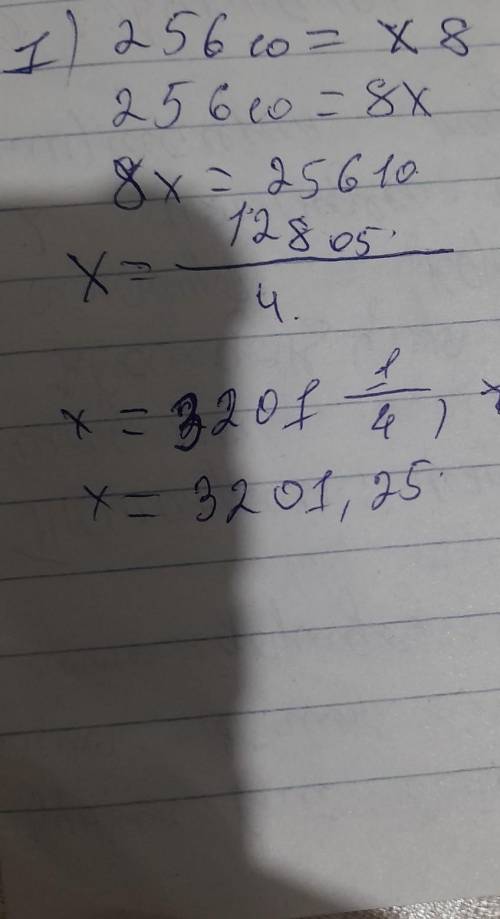 1) 25610 = x 8
25610 = 8x
8x = 25610
x = 12805/4.
x = 3201 1/4,
x = 3201,25